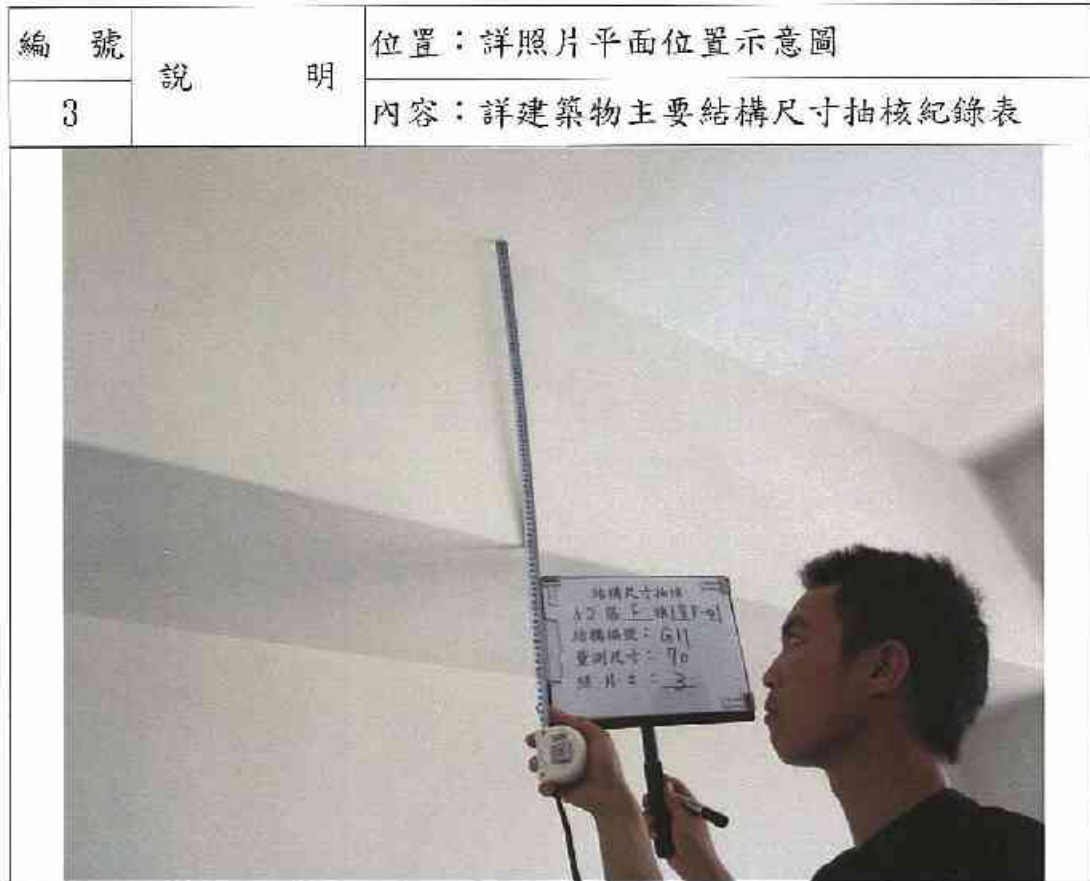 編 號
3
說 明
位置：詳照片平面位置示意圖
內容：詳建築物主要結構尺寸抽核紀錄表
結構尺寸抽核
A2 區 F 棟
結構編號：G11
量測尺寸：70
照片 ：3